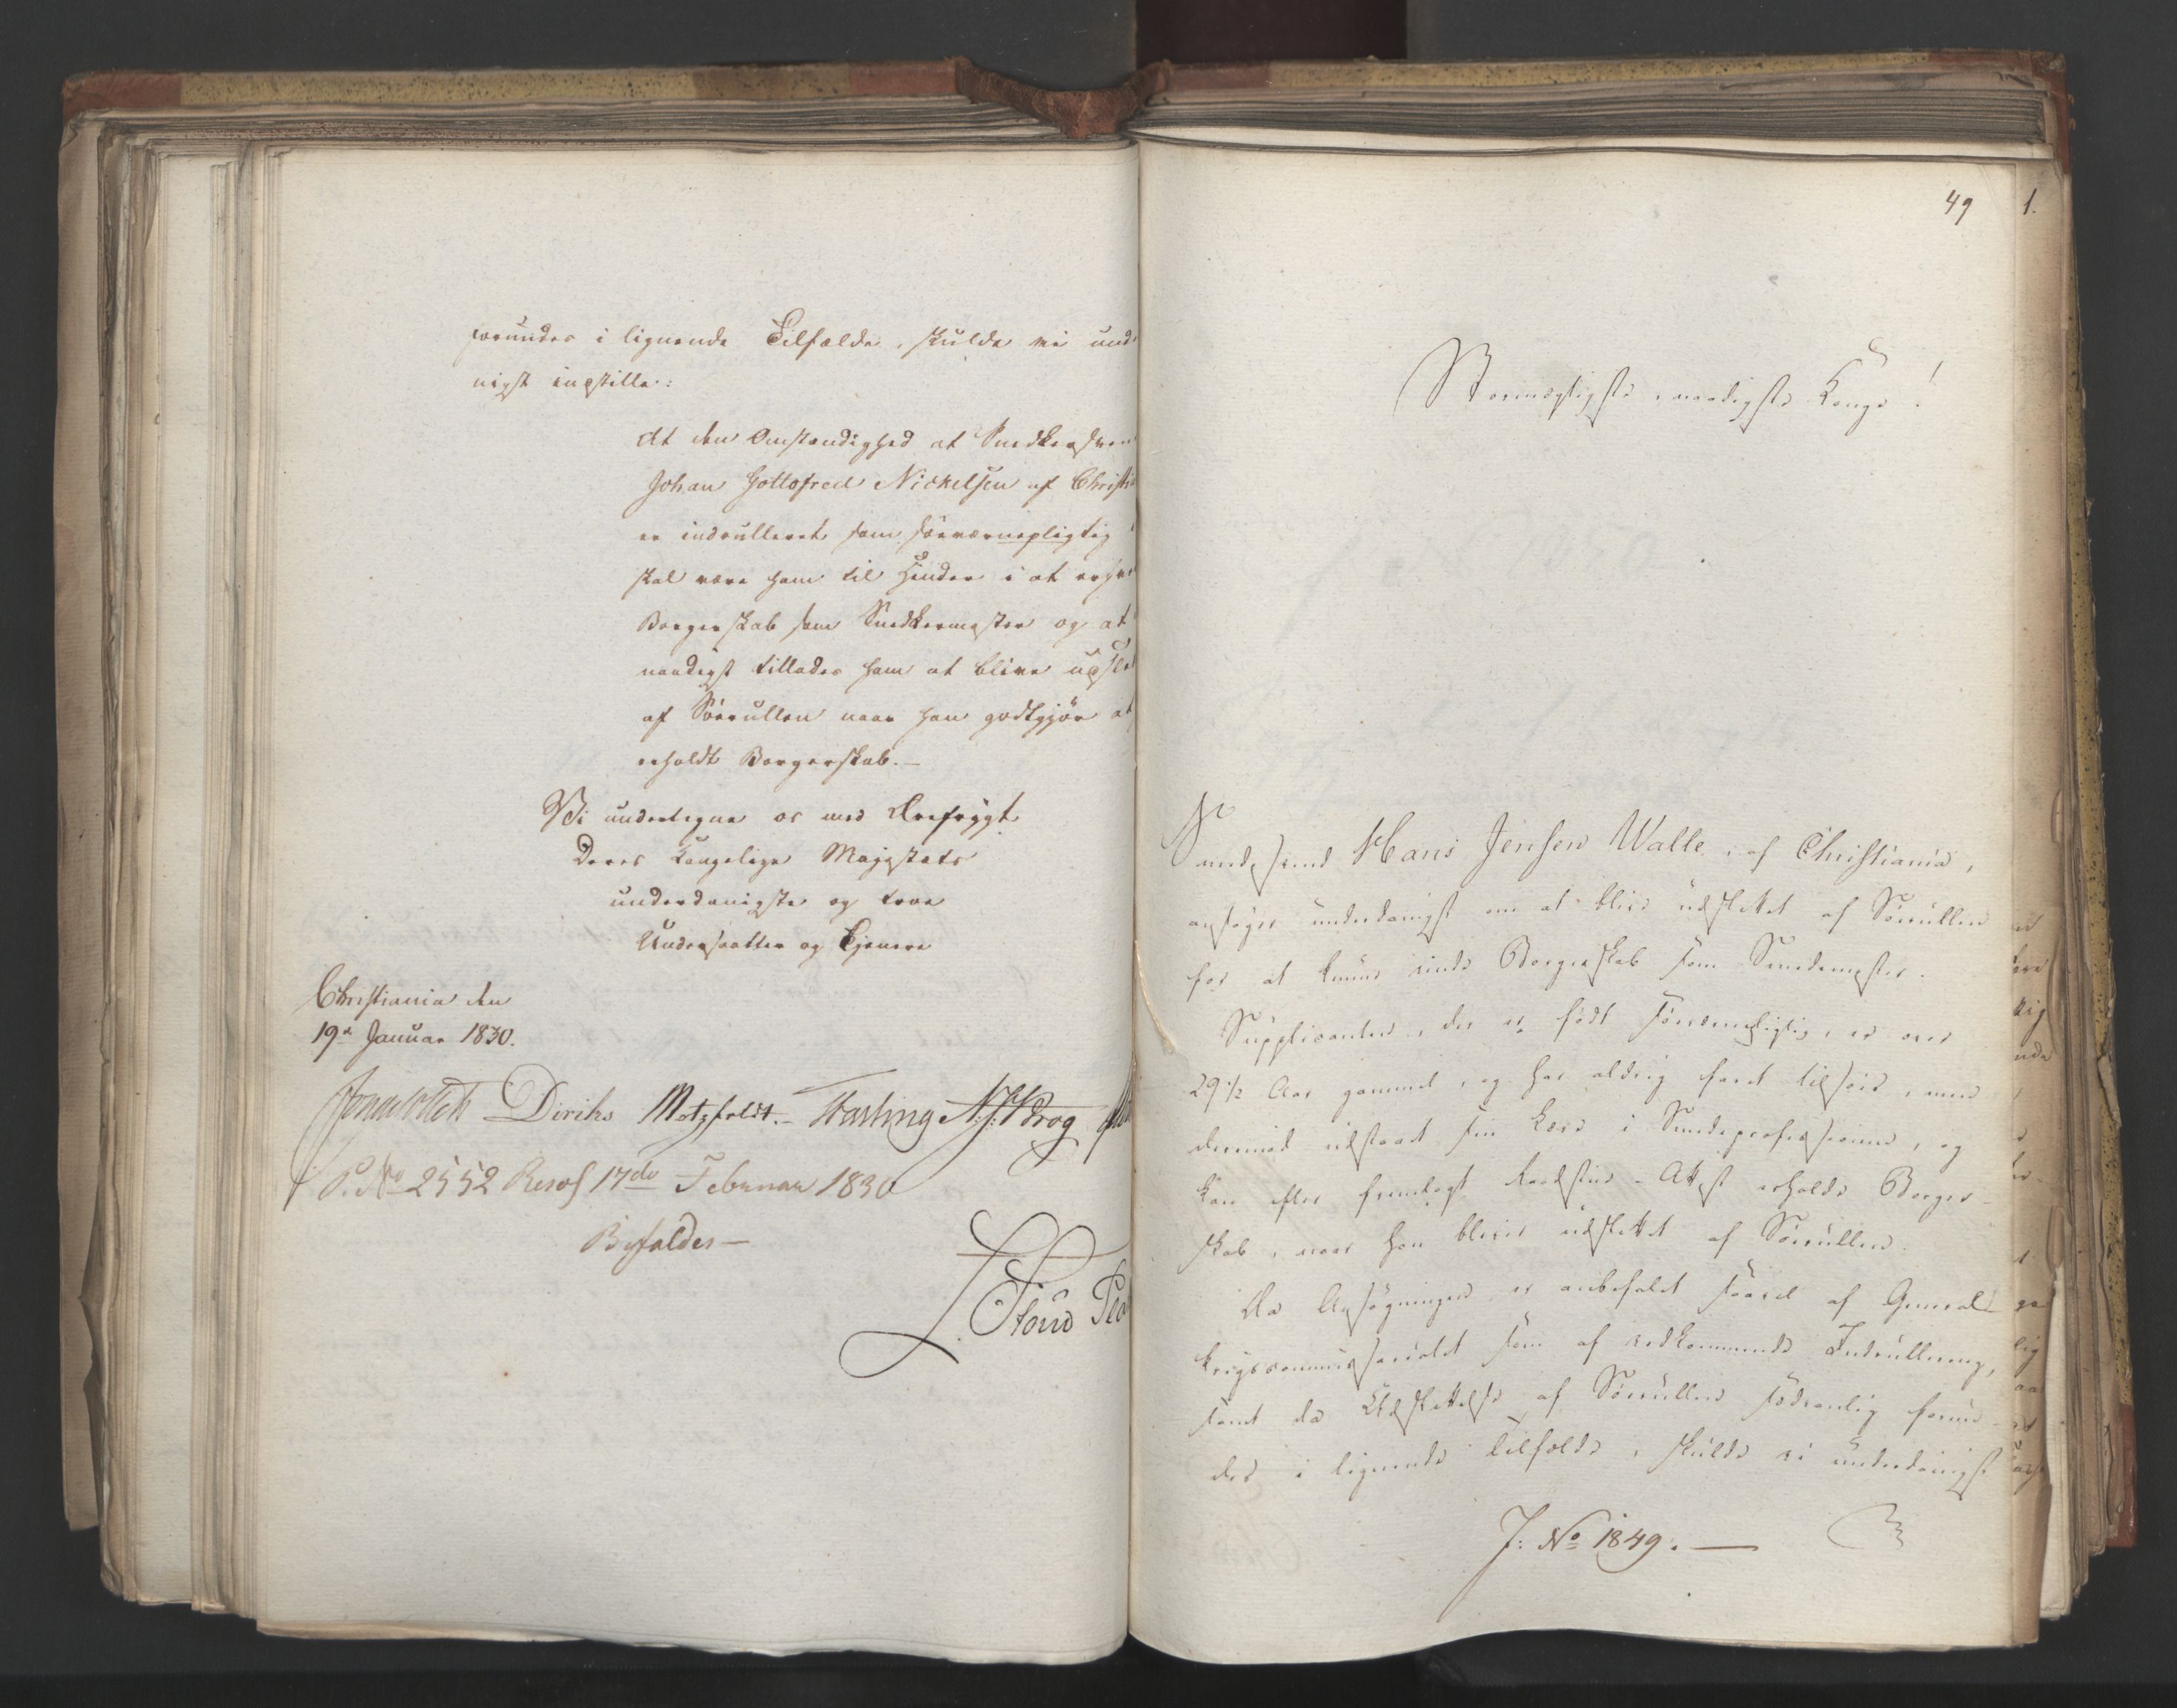 forundes i lignende Tilfælde, skulde vi und
nigst indstille:
At den Omstændighed at Snedkersven
Johan Gottofred Nickelsen af Christi
er indrulleret som søeværnepligtig
skal være ham til Hinder i at erhve
Borgerskab som Snedkermester og at
naadigst tillades ham at blive udsle
af Søerullen naar han godtgjør at
erholdt Borgerskab.—
Vi undertegne os med Ærefrygt
Deres Kongelige Majestæts
underdanigste og troe
Undersaatter og Tjenere
Christiania den
19de Januar 1830.
Diriks Motzfeldt.- Fasting
P. No 2552 Resol 17de Februar 1830
Bifaldes—
49 1.
Stormægtigste, naadigste Konge!
Smedsvend Hans Jensen Walle, af Christiania,
ansøger underdanigst om at blive udslettet af Søerullen
for at kunne vinde Borgerskab som Smedemester.
Supplicanten, der er født søeværnepligtig, er over
29 1/2 Aar gammel, og har aldrig faret tilsøes, men
derimod udstaaet sin Lære i Smedeprofessionen, og
kan efter fremlagt Raadstue-Attest erholde Borger-
skab, naar han bliver udslettet af Søerullen.
Da Ansøgningen er anbefalet saavel af General-
krigscommissariatet som af vedkommende Indrullering,
samt da Udslettelse af Søerullen sædvanlig forun-
des i lignende Tilfælde, skulde vi underdanigst
J: No 1849.—